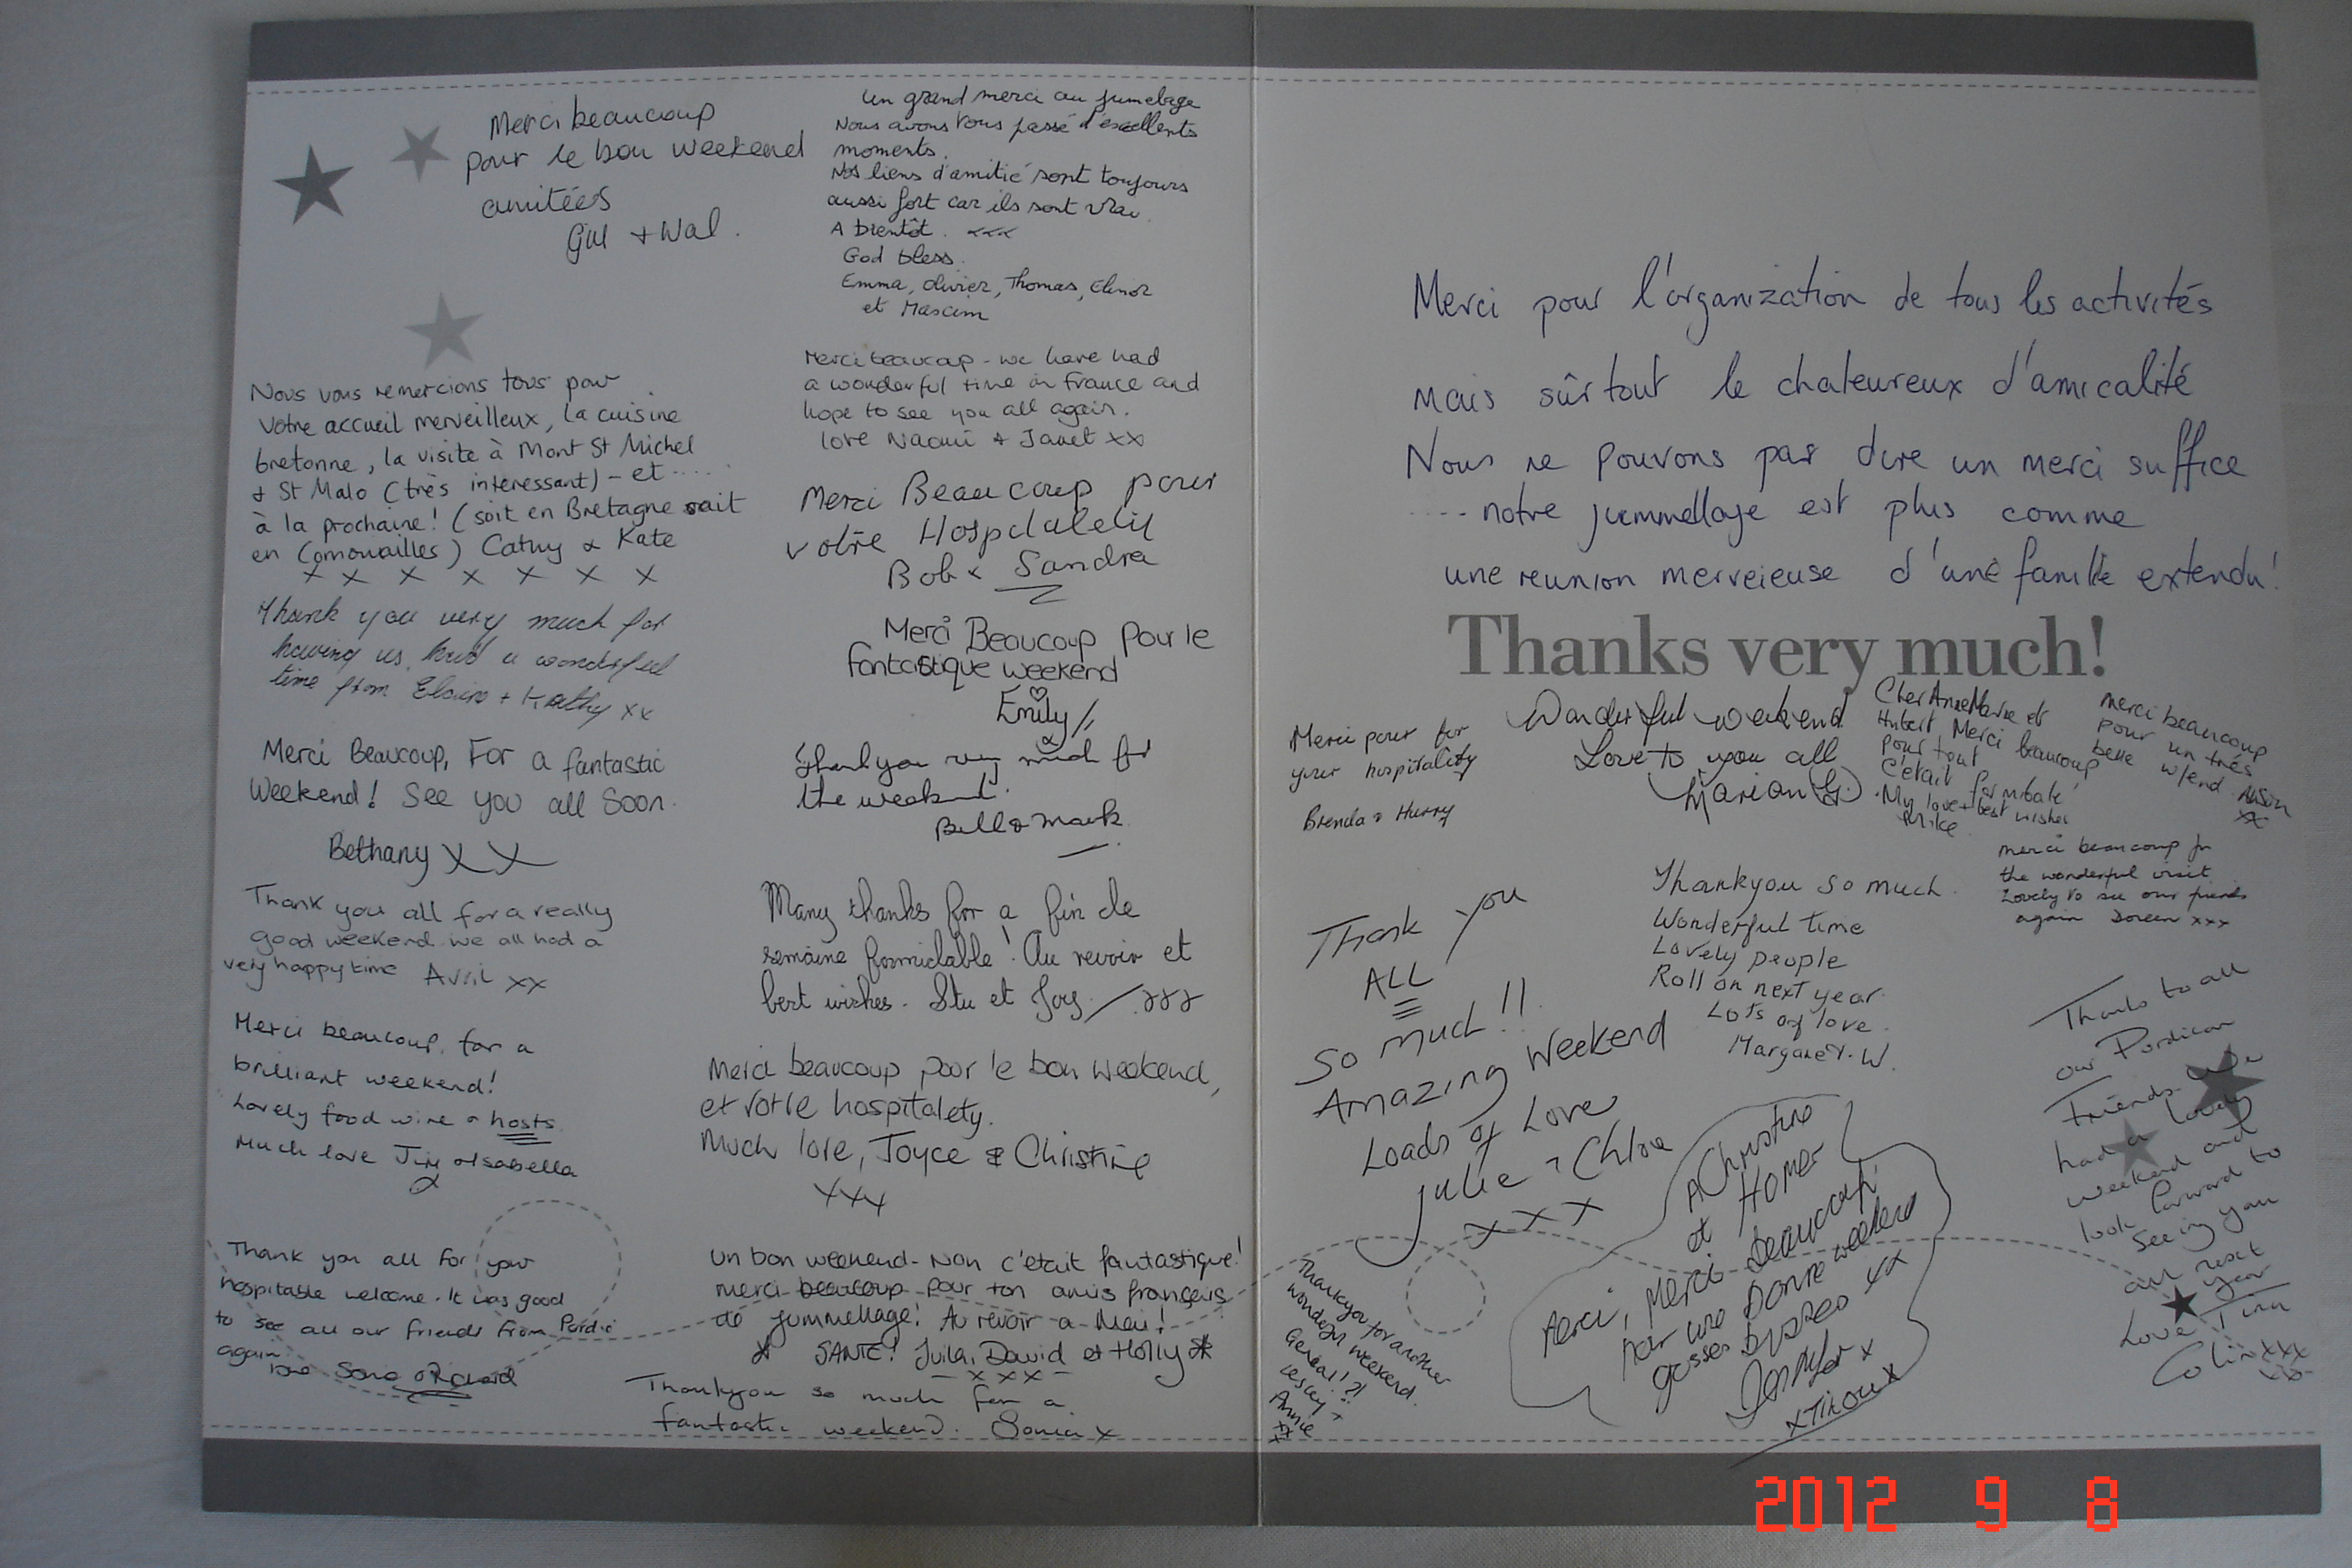 Merci beaucoup
pour le bon weekend
amitées
Gill + Wal.
Nous vous remercions tous pour
votre accueil merveilleux, la cuisine
bretonne, la visite à Mont St Michel
+ St Malo (très intéressant) - et .....
à la prochaine! (soit en Bretagne soit
en Cornouailles) Cathy & Kate
x x x x x x x
Thank you very much for
having us, had a wonderful
time from Elaine + Kathy xx
Merci Beaucoup, For a fantastic
Weekend! See you all Soon.
Bethany XX
Thank you all for a really
good weekend we all had a
very happy time Avril xx
Merci beaucoup, for a
brilliant weekend!
Lovely food wine & hosts.
Much love Jim & Isabella
x
Thank you all for your
hospitable welcome. It was good
to see all our friends from Pordic
again.
Un grand merci au jumelage
Nous avons tous passé d'excellents
moments.
Nos liens d'amitié sont toujours
aussi fort car ils sont vrai.
A bientôt. xxx
God bless.
Emma, Olivier, Thomas, Elinor
et Maxim
Merci beaucoup - we have had
a wonderful time in France and
hope to see you all again.
love Naomi & Janet xx
Merci Beaucoup pour
votre
Bob & Sandra
Merci Beaucoup Pour le
fantastique weekend
Emily //
x
Thankyou very much for
the weekend.
Bill & Mark
Many thanks for a fin de
semaine formidable! Au revoir et
best wishes. Stu et Joy xxx
Merci beaucoup pour le bon weekend,
et votre hospitalety.
Much love, Joyce & Christine
xxx
Un bon weekend - Non c'etait fantastique!
merci beaucoup pour ton amis français
de jummellage! Au revoir a Meu!
SANTE! Juila, David et Holly
- x x x -
Thankyou so much for a
fantastic weekend. Sonia x
Merci pour l'organization de tous les activités
mais sûrtout le chaleureux d'amicalité
Nous ne pouvons pas dire un merci suffice
.... notre jummellage est plus comme
une reunion merveieuse d'une famille extendu!
Thanks very much!
Merci pour for
your hospitality
Brenda & Harry
Wonderful weekend
Love to you all
Marion G.
Cher AnneMarie et
Hubert Merci beaucoup
pour tout
C'etait formibale
My love + best wishes
Mike
merci beaucoup
pour un très
belle w/end. Alison
xx
Merci beaucoup for
the wonderful visit
Lovely to see our friends
again Doreen xxx
Thank you
ALL
so much!!
Amazing Weekend
Loads of Love
Julie & Chloe
x x x
Thankyou so much.
Wonderful time
Lovely people
Roll on next year.
Lots of love.
Margaret. W.
Thanks to all
our Pordican
Friends. We
had a lovely
weekend and
look forward to
seeing you
all next
year
Love Tina
Colin xxx
A Christine
et Homer
Merci, Merci Beaucoup
par une Bonne weekend
gosses bysseo xx
Jennifer x
x Tikoux x
Thankyou for another
wonderful weekend.
Lesley +
Annie
xx
2012 9 8